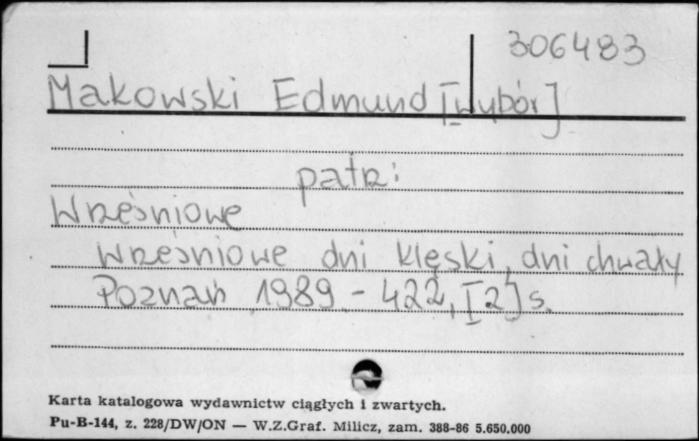 306483
Makowski Edmund [Wybór]
patrz:
Wrześniowe
Wrześniowe dni klęski, dni chwały
Poznań 1989 - 422, [2] s.
Karta katalogowa wydawnictw ciągłych i zwartych.
Pu-B-144, z. 228/DW/ON — W.Z.Graf. Milicz, zam. 388-86 5.650.000